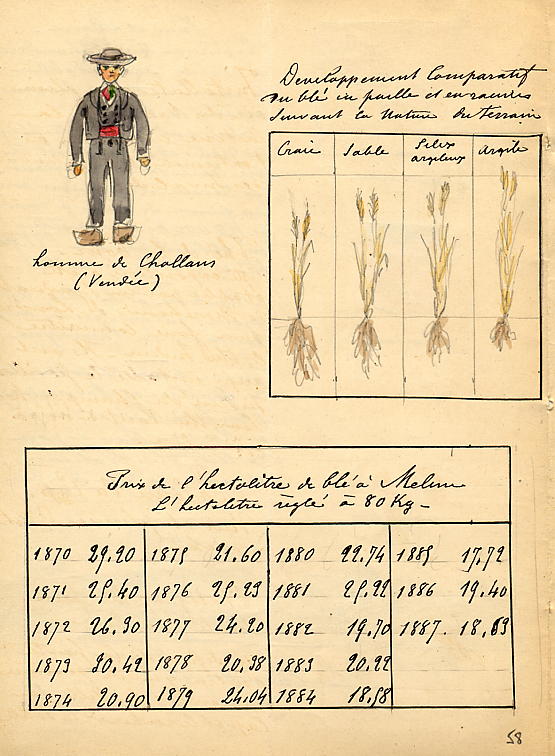 Developpement Comparatif
du blé en paille et en racines
suivant la Nature du terrain
Craie Sable Silex argileux Argile
homme de Challans
(Vendée)
Prix de l'hectolitre de blé à Melun
L'hectolitre réglé à 80 Kg-
1870 29.20 1875 21.60 1880 22.74 1885 17.72
1871 25.40 1876 25.23 1881 25.22 1886 19.40
1872 26.30 1877 24.20 1882 19.70 1887. 18.69
1873 30.42 1878 20.38 1883 20.22
1874 20.90 1879 24.04 1884 18.58
58